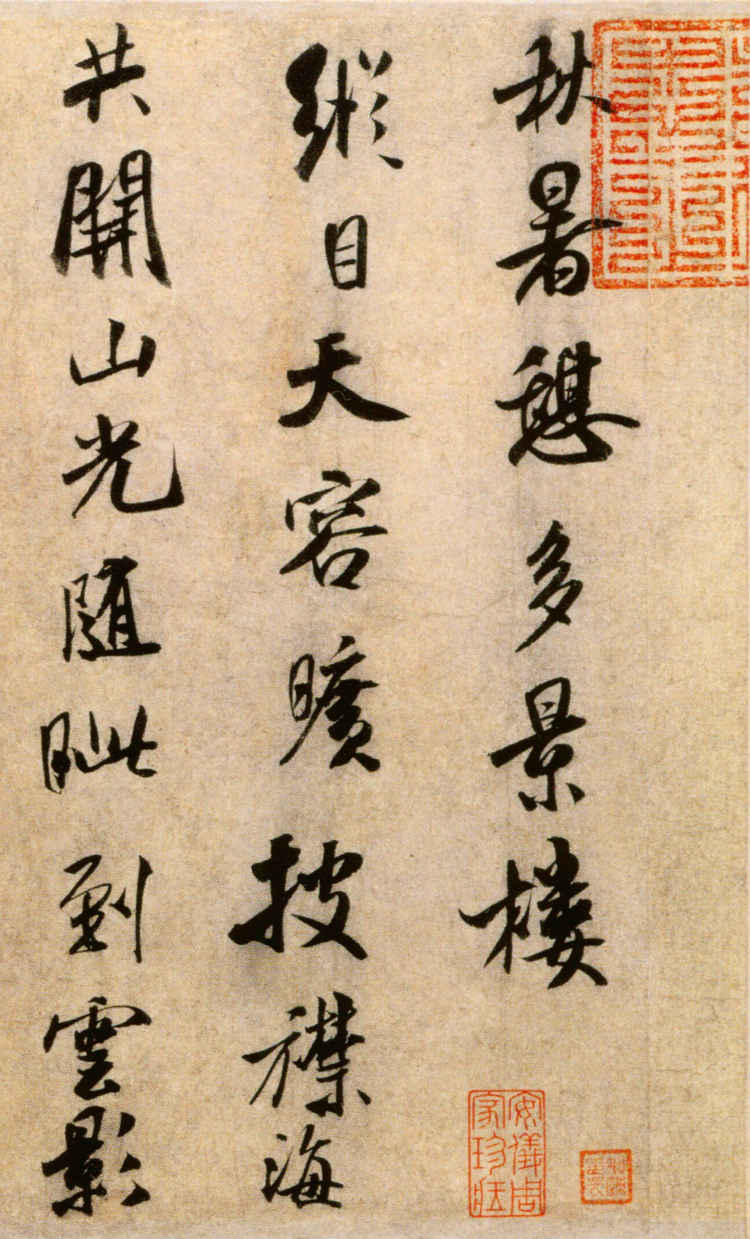 秋暑憩多景樓
縱目天容曠披襟海
共開山光隨眦到雲影
安儀周家珍藏